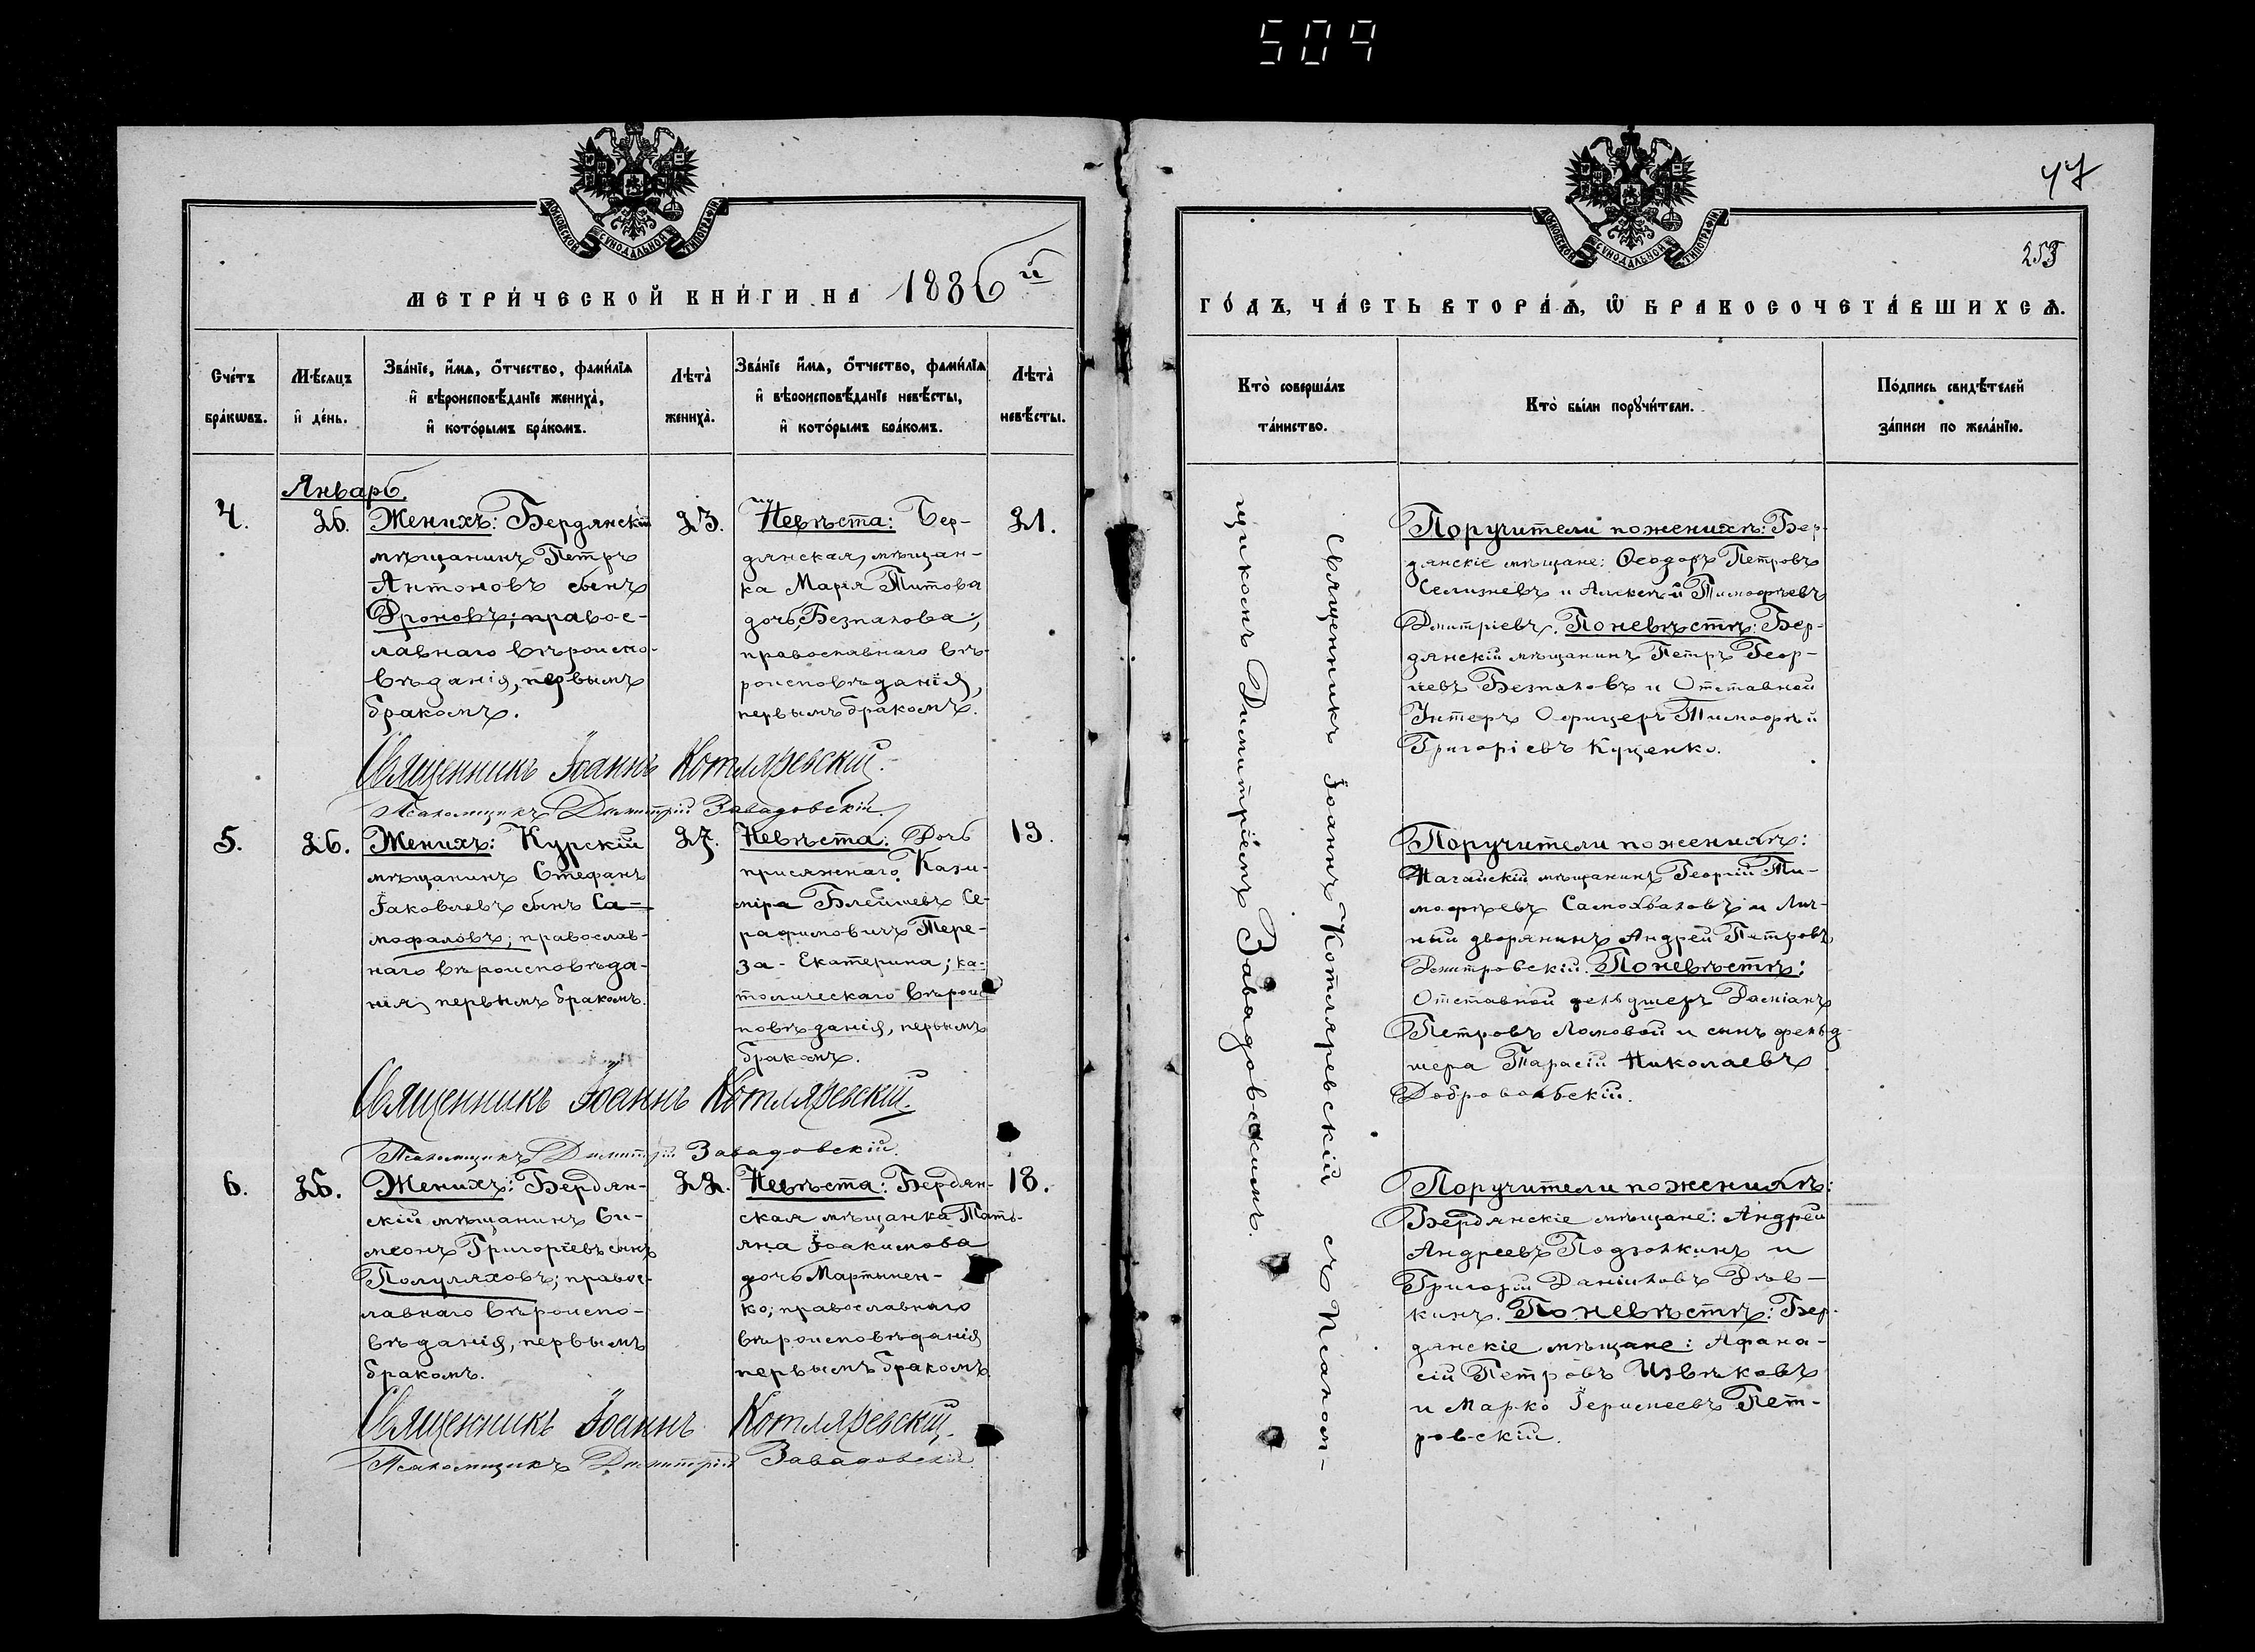 509
МОСКОВСКОЙ СѴНОДАЛЬНОЙ ТИПОГРАФІИ
МЕТРИ́ЧЕСКОЙ КНИ́ГИ НА 1886й
Сче́тъ бра́кѡвъ.
Мѣ́сяцъ и҆ де́нь.
Зва́нїе, и҆́мѧ, ѻ҆́тчество, фами́лїѧ
и҆ вѣроисповѣ́данїе жениха̀,
и҆ кото́рымъ бра́комъ.
Лѣта̀ жениха̀.
Зва́нїе и҆́мѧ, ѻ҆́тчество, фами́лїѧ
и҆ вѣроисповѣ́данїе невѣ́сты,
и҆ кото́рымъ бра́комъ.
Лѣта̀ невѣ́сты.
Январь.
4.
26.
Женихъ: Бердянскій
мѣщанинъ Петръ
Антоновъ сынъ
Фроновъ; правос-
лавнаго вѣроиспо-
вѣданія, первымъ
бракомъ.
23.
Невѣста: Бер-
дянская мѣщан-
ка Марія Титова
дочь Безпалова;
православнаго вѣ-
роисповѣданія,
первымъ бракомъ.
21.
Священникъ Іоаннъ Котляревскій.
Псаломщикъ Димитрій Завадовскій.
5.
26.
Женихъ: Курскій
мѣщанинъ Стефанъ
Іаковлевъ сынъ Са-
мофаловъ; православ-
наго вѣроисповѣда-
нія, первымъ бракомъ.
27.
Невѣста: Дочь
присяжнаго Кази-
міра Блейшевъ Се-
рафимовичъ Тере-
за - Екатерина; ка-
толическаго вѣроис
повѣданія, первымъ
бракомъ.
19.
Священникъ Іоаннъ Котляревскій.
Псаломщикъ Димитрій Завадовскій.
6.
26.
Женихъ: Бердян-
скій мѣщанинъ Си-
меонъ Григоріевъ сынъ
Полуляховъ; правос-
лавнаго вѣроиспо-
вѣданія, первымъ
бракомъ.
22.
Невѣста: Бердян-
ская мѣщанка Тать-
яна Іоакимова
дочь Мартынен-
ко; православнаго
вѣроисповѣданія
первымъ бракомъ.
18.
Священникъ Іоаннъ Котляревскій.
Псаломщикъ Димитрій Завадовскій.
МОСКОВСКОЙ СѴНОДАЛЬНОЙ ТИПОГРАФІИ
47
253
ГО́ДЪ, ЧА́СТЬ ВТОРА́Ѧ, Ѡ҆ БРАКОСОЧЕТА́ВШИХСѦ.
Кто̀ соверша́лъ
та́инство.
Кто̀ бы́ли порꙋчи́тели.
По́дпись свидѣ́телей
за́писи по жела́нїю.
Священникъ Іоаннъ Котляревскій съ Псалом-
щикомъ Димитріемъ Завадовскимъ.
Поручители по женихѣ: Бер-
дянскіе мѣщане: Ѳеодоръ Петровъ
Селизневъ и Алексѣй Тимофѣевъ
Дмитріевъ. По невѣстѣ: Бер-
дянскій мѣщанинъ Петръ Геор-
іевъ Безпаловъ и Отставной
Унтеръ Офицеръ Тимофѣй
Григоріевъ Куценко.
Поручители по женихѣ:
Нагайскій мѣщанинъ Георгій Ти-
мофѣевъ Самохваловъ и Лич-
ный дворянинъ Андрей Петровъ
Дмитровскій. По невѣстѣ:
Отставной фельдшеръ Даміанъ
Петровъ Ломовой и сынъ фельд-
шера Тарасій Николаевъ
Добровольскій.
Поручители по женихѣ:
Бердянскіе мѣщане: Андрей
Андреевъ Подзолкинъ и
Григорій Даніиловъ Дѣв-
кинъ. По невѣстѣ: Бер-
дянскіе мѣщане: Афана-
сій Петровъ Извѣковъ
и Марко Геримеевъ Пет-
ровскій.